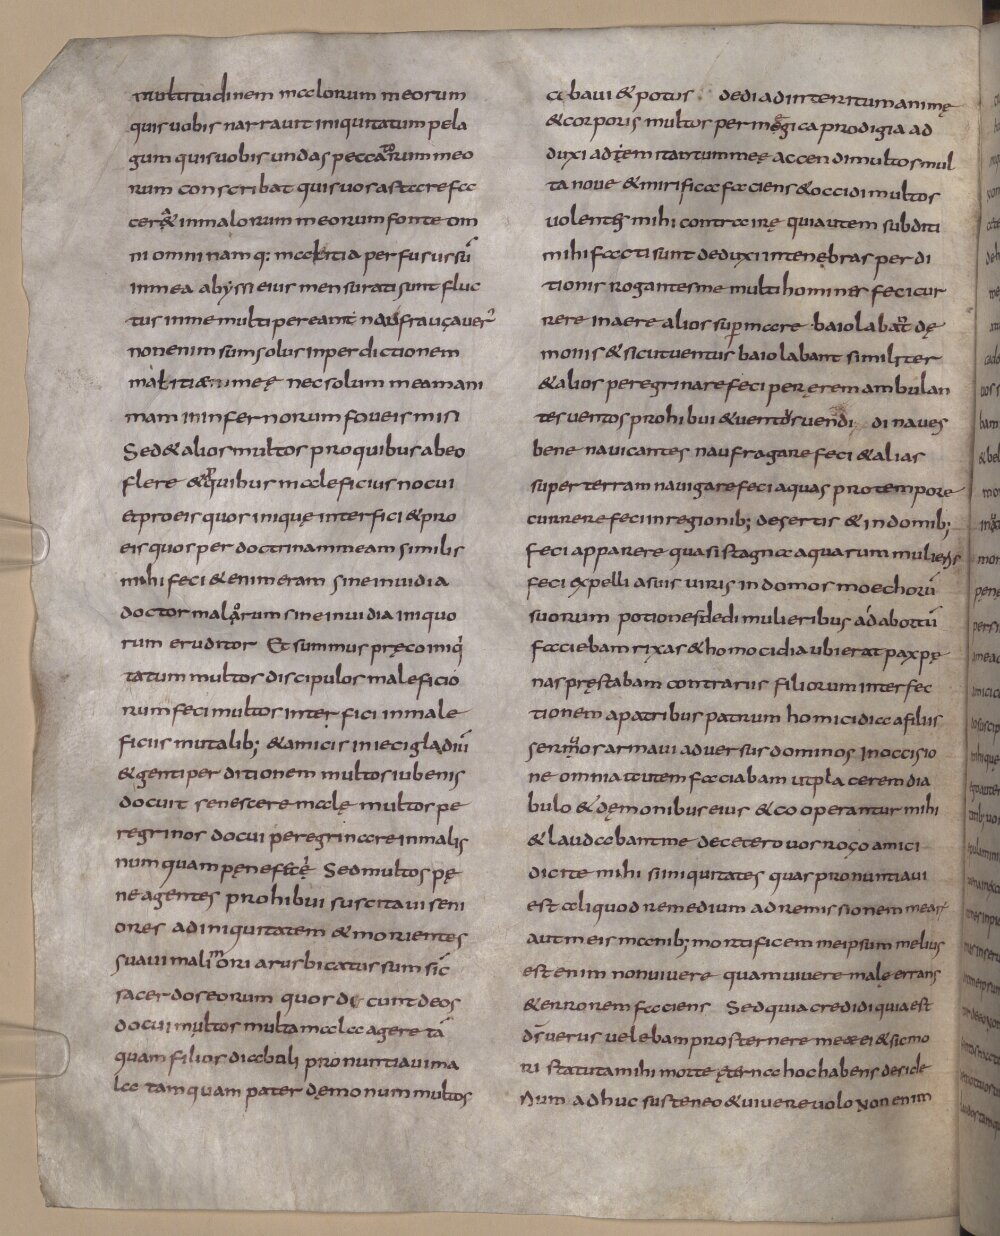 multitudinem malorum meorum
quis uobis narrauit iniquitatum pela
gum quis uobis undas peccatorum meo
rum conscribat quis uos astare fac
in malorum meorum fonte om
ni omni namq: malitia perfusus sū
in mea abyssi eius mensurati sunt fluc
tus in me multi pereant
non enim sum solus in perdictionem
meę nec solum meam ani
mam in infernorum foueis misi
Sed & alios multos pro quibus abeo
flere & quibus maleficius nocui
Et pro eis quos inique interfici & pro
eis quos per doctrinam meam similis
mihi feci & enim eram sine inuidia
doctor malorum sine inuidia iniquo
rum eruditor Et summus pręco iniq
tatum multos discipulos maleficio
rum feci multos interfici in male
ficiis mutalib; & amicis inieci gladiū
& genti perditionem multos iubenis
docuit senescere malę multos pe
regrinos docui peregrinare in malis
numquam pęne Sed multos pę
ne agentes prohibui suscitaui seni
ores ad iniquitatem & morientes
suaui mali ori arusbicatus sum sic
sacerdos eorum quos de cunt deos
docui multos multa mala agere tā
quam filios diabuli pronuntiaui ma
la tamquam pater dęmonum multos
cabaui & potus dedi ad interitum animę
& corporis multos per magica prodigia ad
duxi ad ięm statum meę accendi multos mul
ta noue & mirifica faciens & occidi multos
uolentes mihi contra irę qui autem subditi
mihi facti sunt deduxi in tenebras perdi
tionis rogantes me multi homines feci cur
rere in aere alios super mare baiolabat dę
monis & sicut uentus baiolabant similiter
& alios peregrinare feci per ęrem ambulan
tes uentos prohibui & uentos uendi di naues
bene nauicantes naufragare feci & alias
super terram nauigare feci aquas pro tempore
currere feci in regionib; desertis & in domib;
feci apparere quasi stagna aquarum mulieres
feci expelli a suis uiris in domos moechorū
suorum potiones dedi mulieribus ad abortū
faciebam rixas & homocidia ubi erat pax pę
nas pręstabam contrarius filiorum interfec
tionem a patribus patrum homicidia a filiis
sermos armaui aduersus dominos in occisio
ne omnia autem faciabam ut placerem dia
bulo & dęmonibus eius & cooperantur mihi
& laudabant me de cetero uos roço amici
dicite mihi si iniquitates quas pronuntiaui
est aliquod remedium ad remissionem mear
aut meis manib; mortificem me ipsum melius
est enim non uiuere quam uiuere malę errans
& errorem faciens Sed quia credidi quia est
ds uerus uelebam prosternere me ei & sic mo
ri statuta mihi morte ęterna hoc habens deside
rium adhuc susteneo & uiuere uolo Non enim